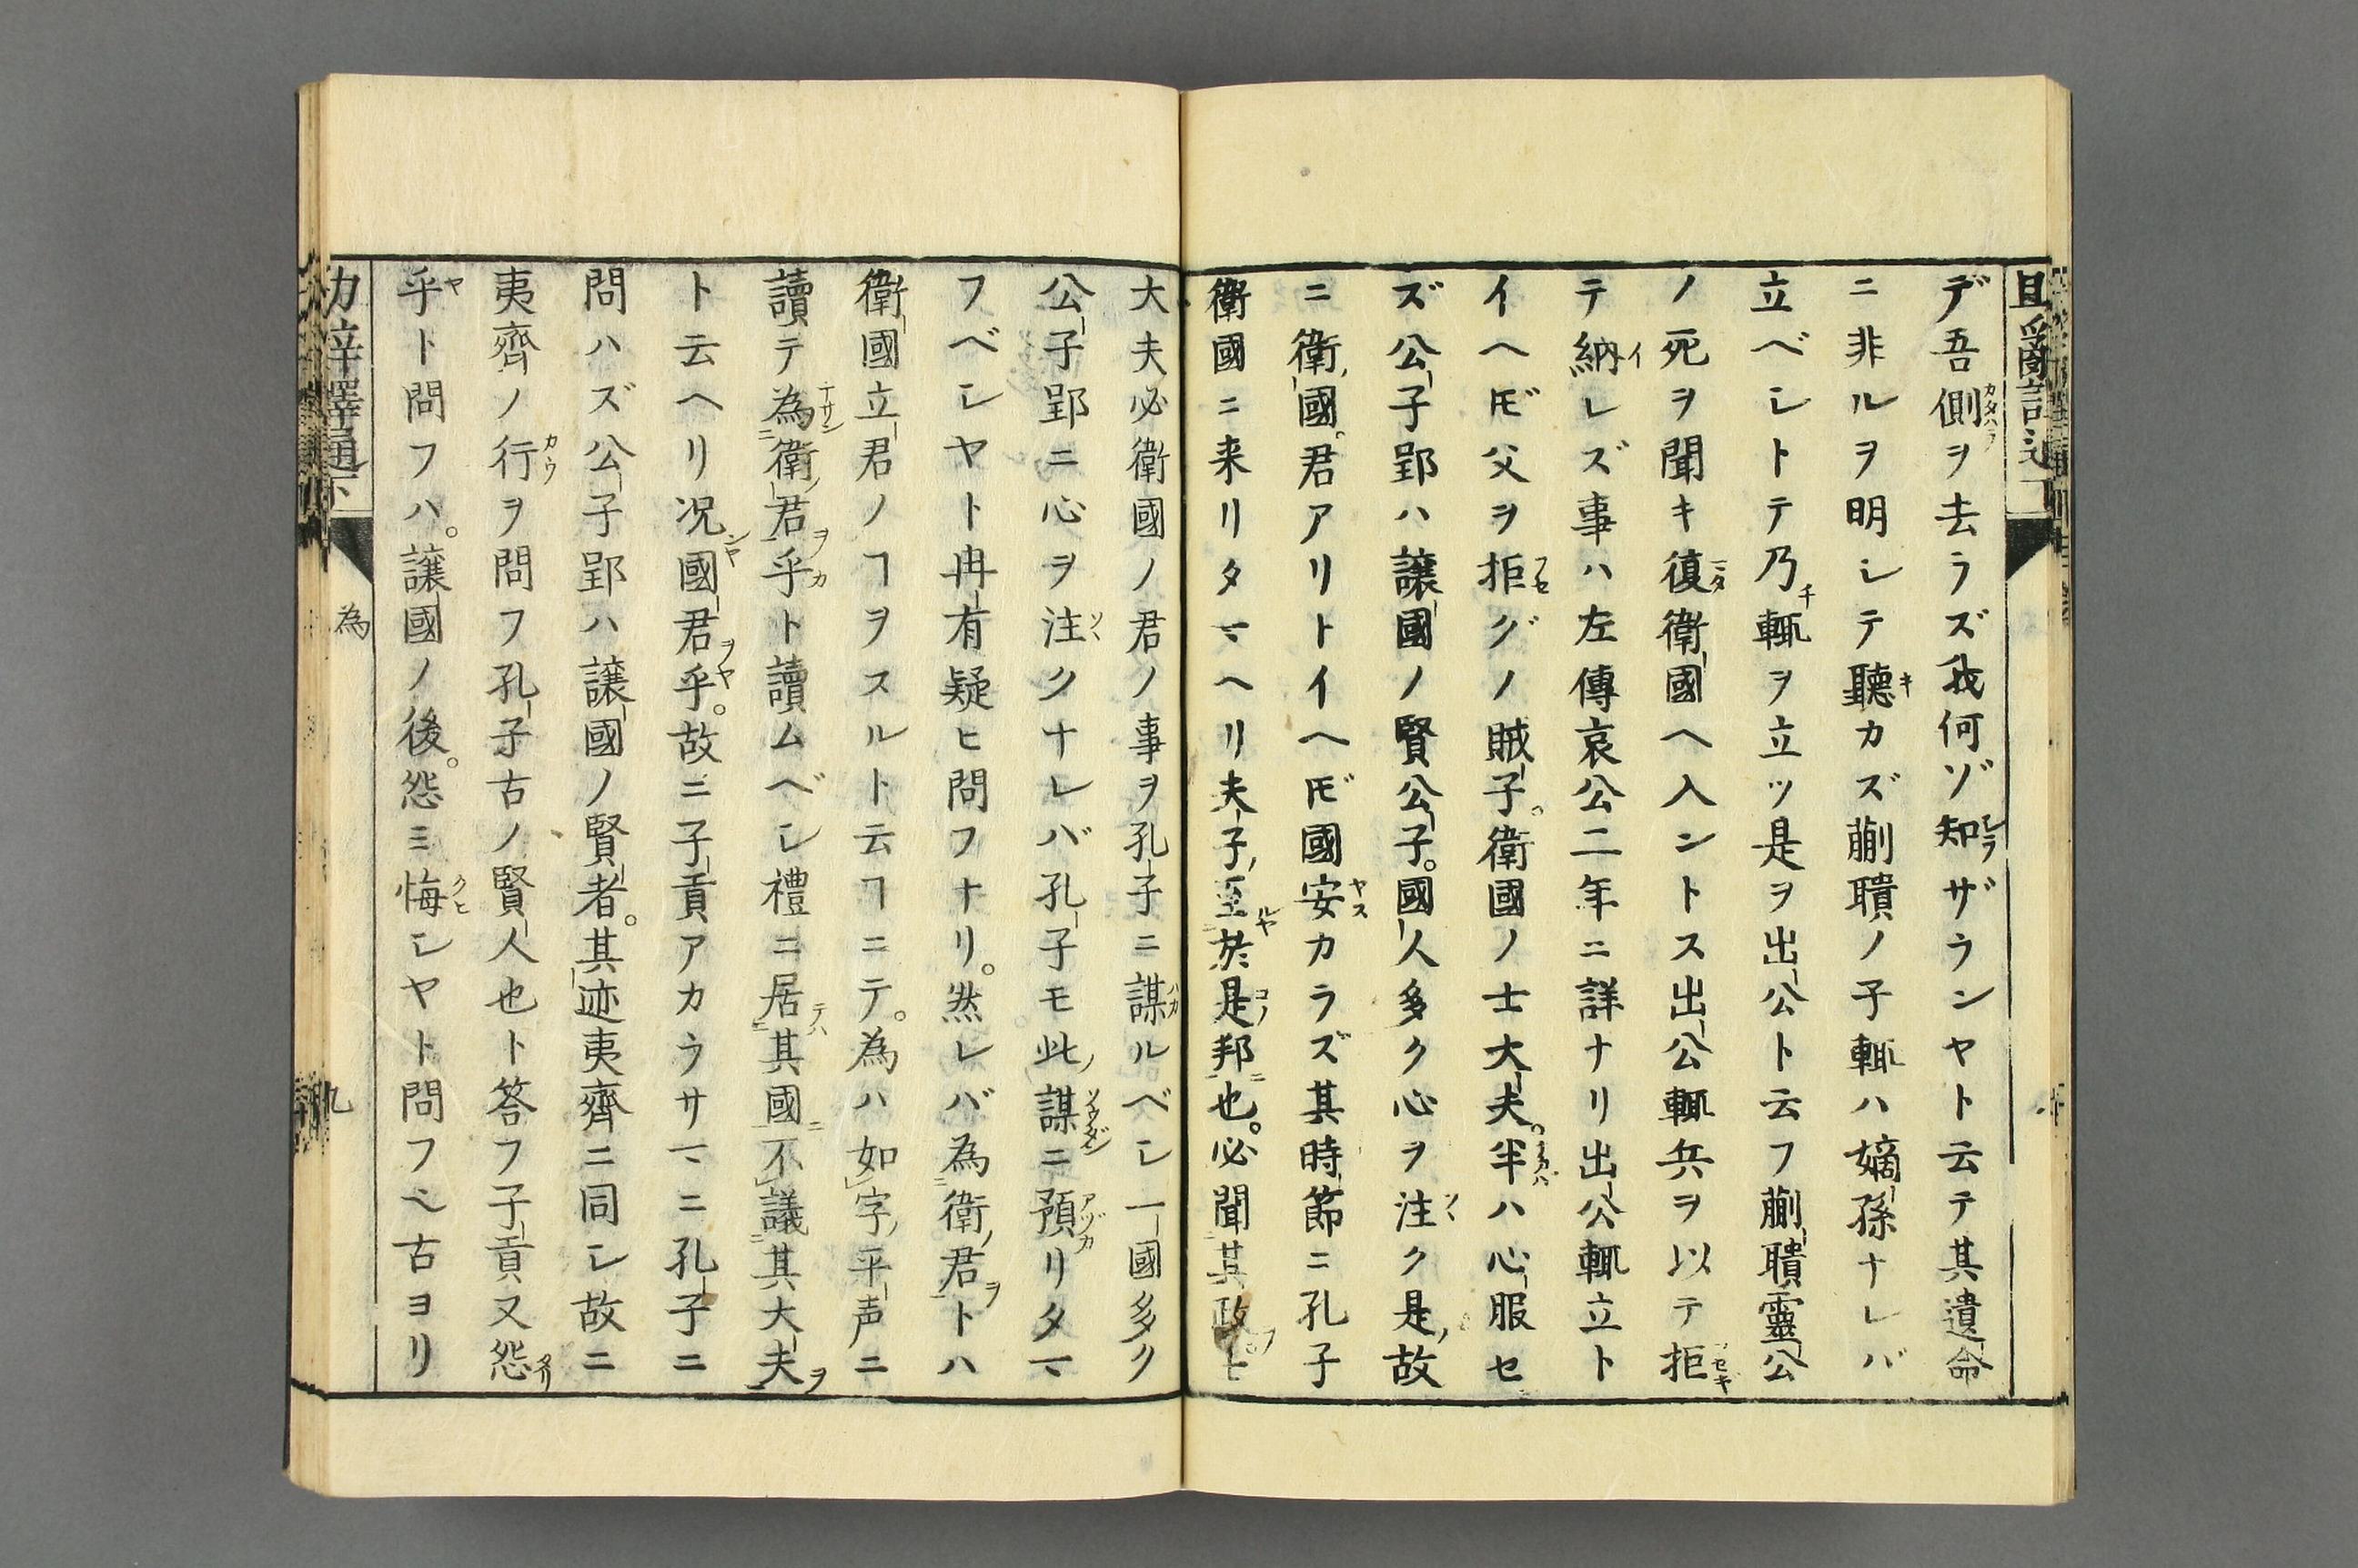 デ吾側ヲ去ラズ我何ゾ知ザランヤト云テ其遺命
ニ非ルヲ明シテ聽カズ蒯聵ノ子輒ハ嫡孫ナレバ
立ベシトテ乃輒ヲ立ツ是ヲ出公ト云フ蒯聵靈公
ノ死ヲ聞キ復衛國ヘ入ントス出公輒兵ヲ以テ拒
テ納レズ事ハ左傳哀公二年ニ詳ナリ出公輒立ト
イヘ𪜈父ヲ拒グノ賊子。衛國ノ士大夫。半ハ心服セ
ズ公子郢ハ讓國ノ賢公子。國人多ク心ヲ注ク是故
ニ衛國。君アリトイヘ𪜈國安カラズ其時節ニ孔子
衛國ニ来リタマヘリ夫子至於是邦也。必聞其政ト
大夫必衛國ノ君ノ事ヲ孔子ニ謀ルベシ一國多ク
公子郢ニ心ヲ注クナレバ孔子モ此謀ニ預リタマ
フベシヤト冉有疑ヒ問フナリ。然レバ為衛君トハ
衛國立君ノヿヲスルト云ヿニテ。為ハ如字平声ニ
讀テ為衛君乎ト讀ムベシ禮ニ居其國不議其大夫
ト云ヘリ况國君乎。故ニ子貢アカラサマニ孔子ニ
問ハズ公子郢ハ讓國ノ賢者。其迹夷齊ニ同シ故ニ
夷齊ノ行ヲ問フ孔子古ノ賢人也ト答フ子貢又怨
乎ト問フハ。讓國ノ後。怨ミ悔シヤト問フベ古ヨリ
為
九